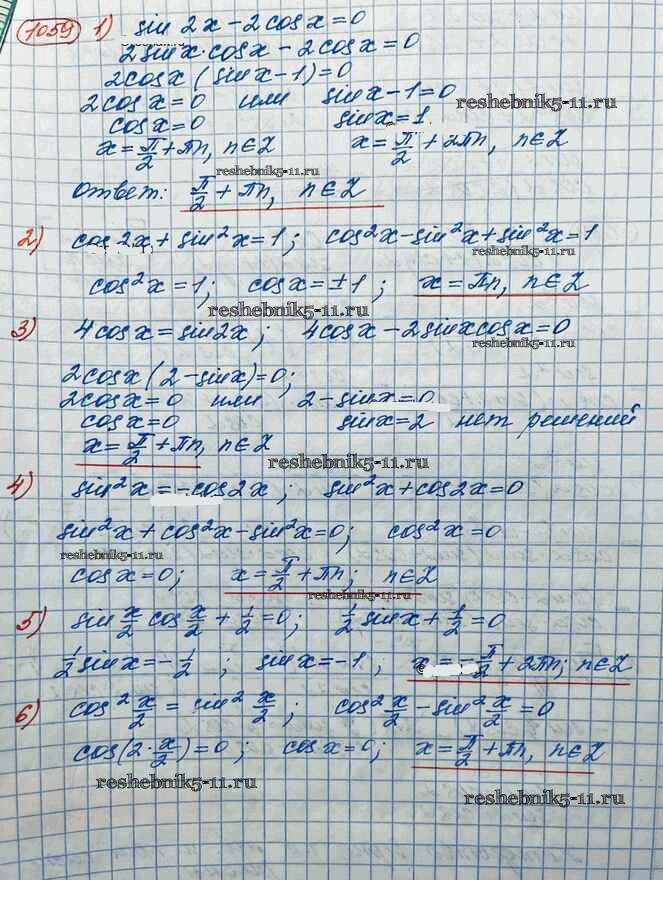 1059 1) sin 2x - 2cos x = 0
2sin x · cos x - 2cos x = 0
2cos x (sin x - 1) = 0
2cos x = 0 или sin x - 1 = 0
reshebnik5-11.ru
cos x = 0 sin x = 1
x = π/2 + πn, n∈Z x = π/2 + 2πn, n∈Z
reshebnik5-11.ru
Ответ: π/2 + πn, n∈Z
2) cos 2x + sin²x = 1; cos²x - sin²x + sin²x = 1
reshebnik5-11.ru
cos²x = 1; cos x = ±1; x = πn, n∈Z
reshebnik5-11.ru
3) 4cos x = sin 2x; 4cos x - 2sin x cos x = 0
reshebnik5-11.ru
2cos x (2 - sin x) = 0;
2cos x = 0 или 2 - sin x = 0
cos x = 0 sin x = 2 нет решений
x = π/2 + πn, n∈Z
reshebnik5-11.ru
4) sin²x = -cos 2x; sin²x + cos 2x = 0
sin²x + cos²x - sin²x = 0; cos²x = 0
reshebnik5-11.ru
cos x = 0; x = π/2 + πn; n∈Z
reshebnik5-11.ru
5) sin x/2 cos x/2 + 1/2 = 0; 1/2 sin x + 1/2 = 0
1/2 sin x = -1/2; sin x = -1; x = -π/2 + 2πn; n∈Z
6) cos² x/2 = sin² x/2; cos² x/2 - sin² x/2 = 0
cos(2 · x/2) = 0; cos x = 0; x = π/2 + πn, n∈Z
reshebnik5-11.ru
reshebnik5-11.ru